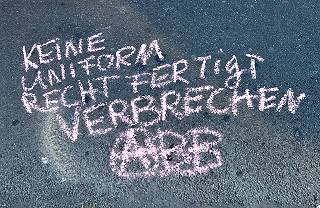 KEINE
UNIFORM
RECHTFERTIGT
VERBRECHEN